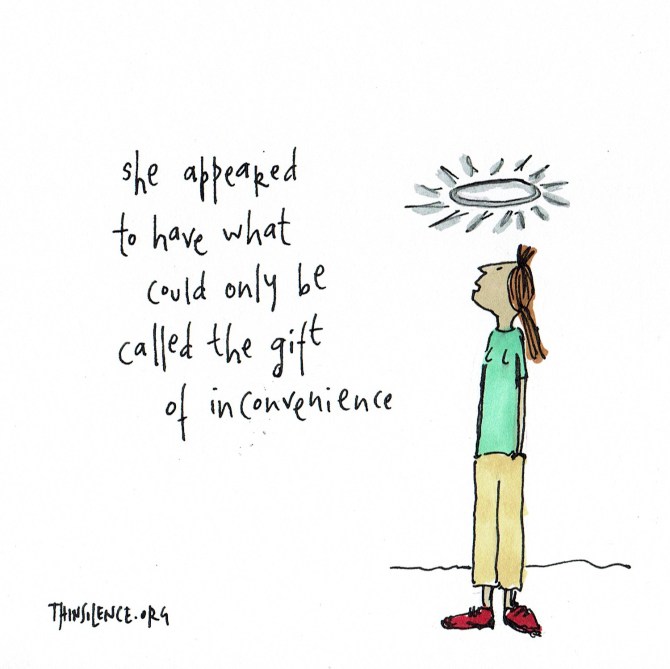 she appeared
to have what
could only be
called the gift
of inconvenience
THINSILENCE.ORG